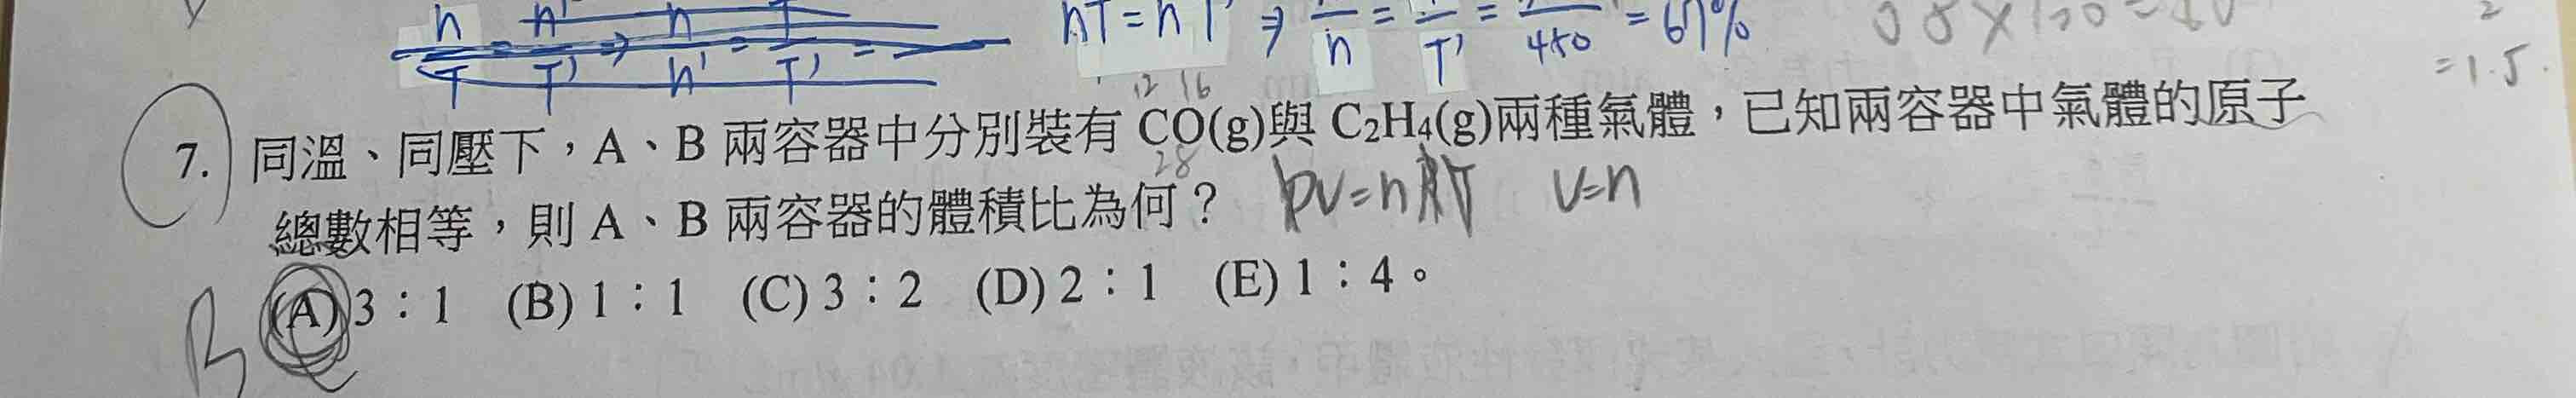 n n' n T
T T' n' T'
nT=n'T' ⇒ n = T' = 450 = 67%
=1.5
12 16
7. 同溫、同壓下，A、B 兩容器中分別裝有 CO(g)與 C₂H₄(g)兩種氣體，已知兩容器中氣體的原子
28
總數相等，則 A、B 兩容器的體積比為何？ PV=nRT V=n
B (A) 3：1 (B) 1：1 (C) 3：2 (D) 2：1 (E) 1：4。